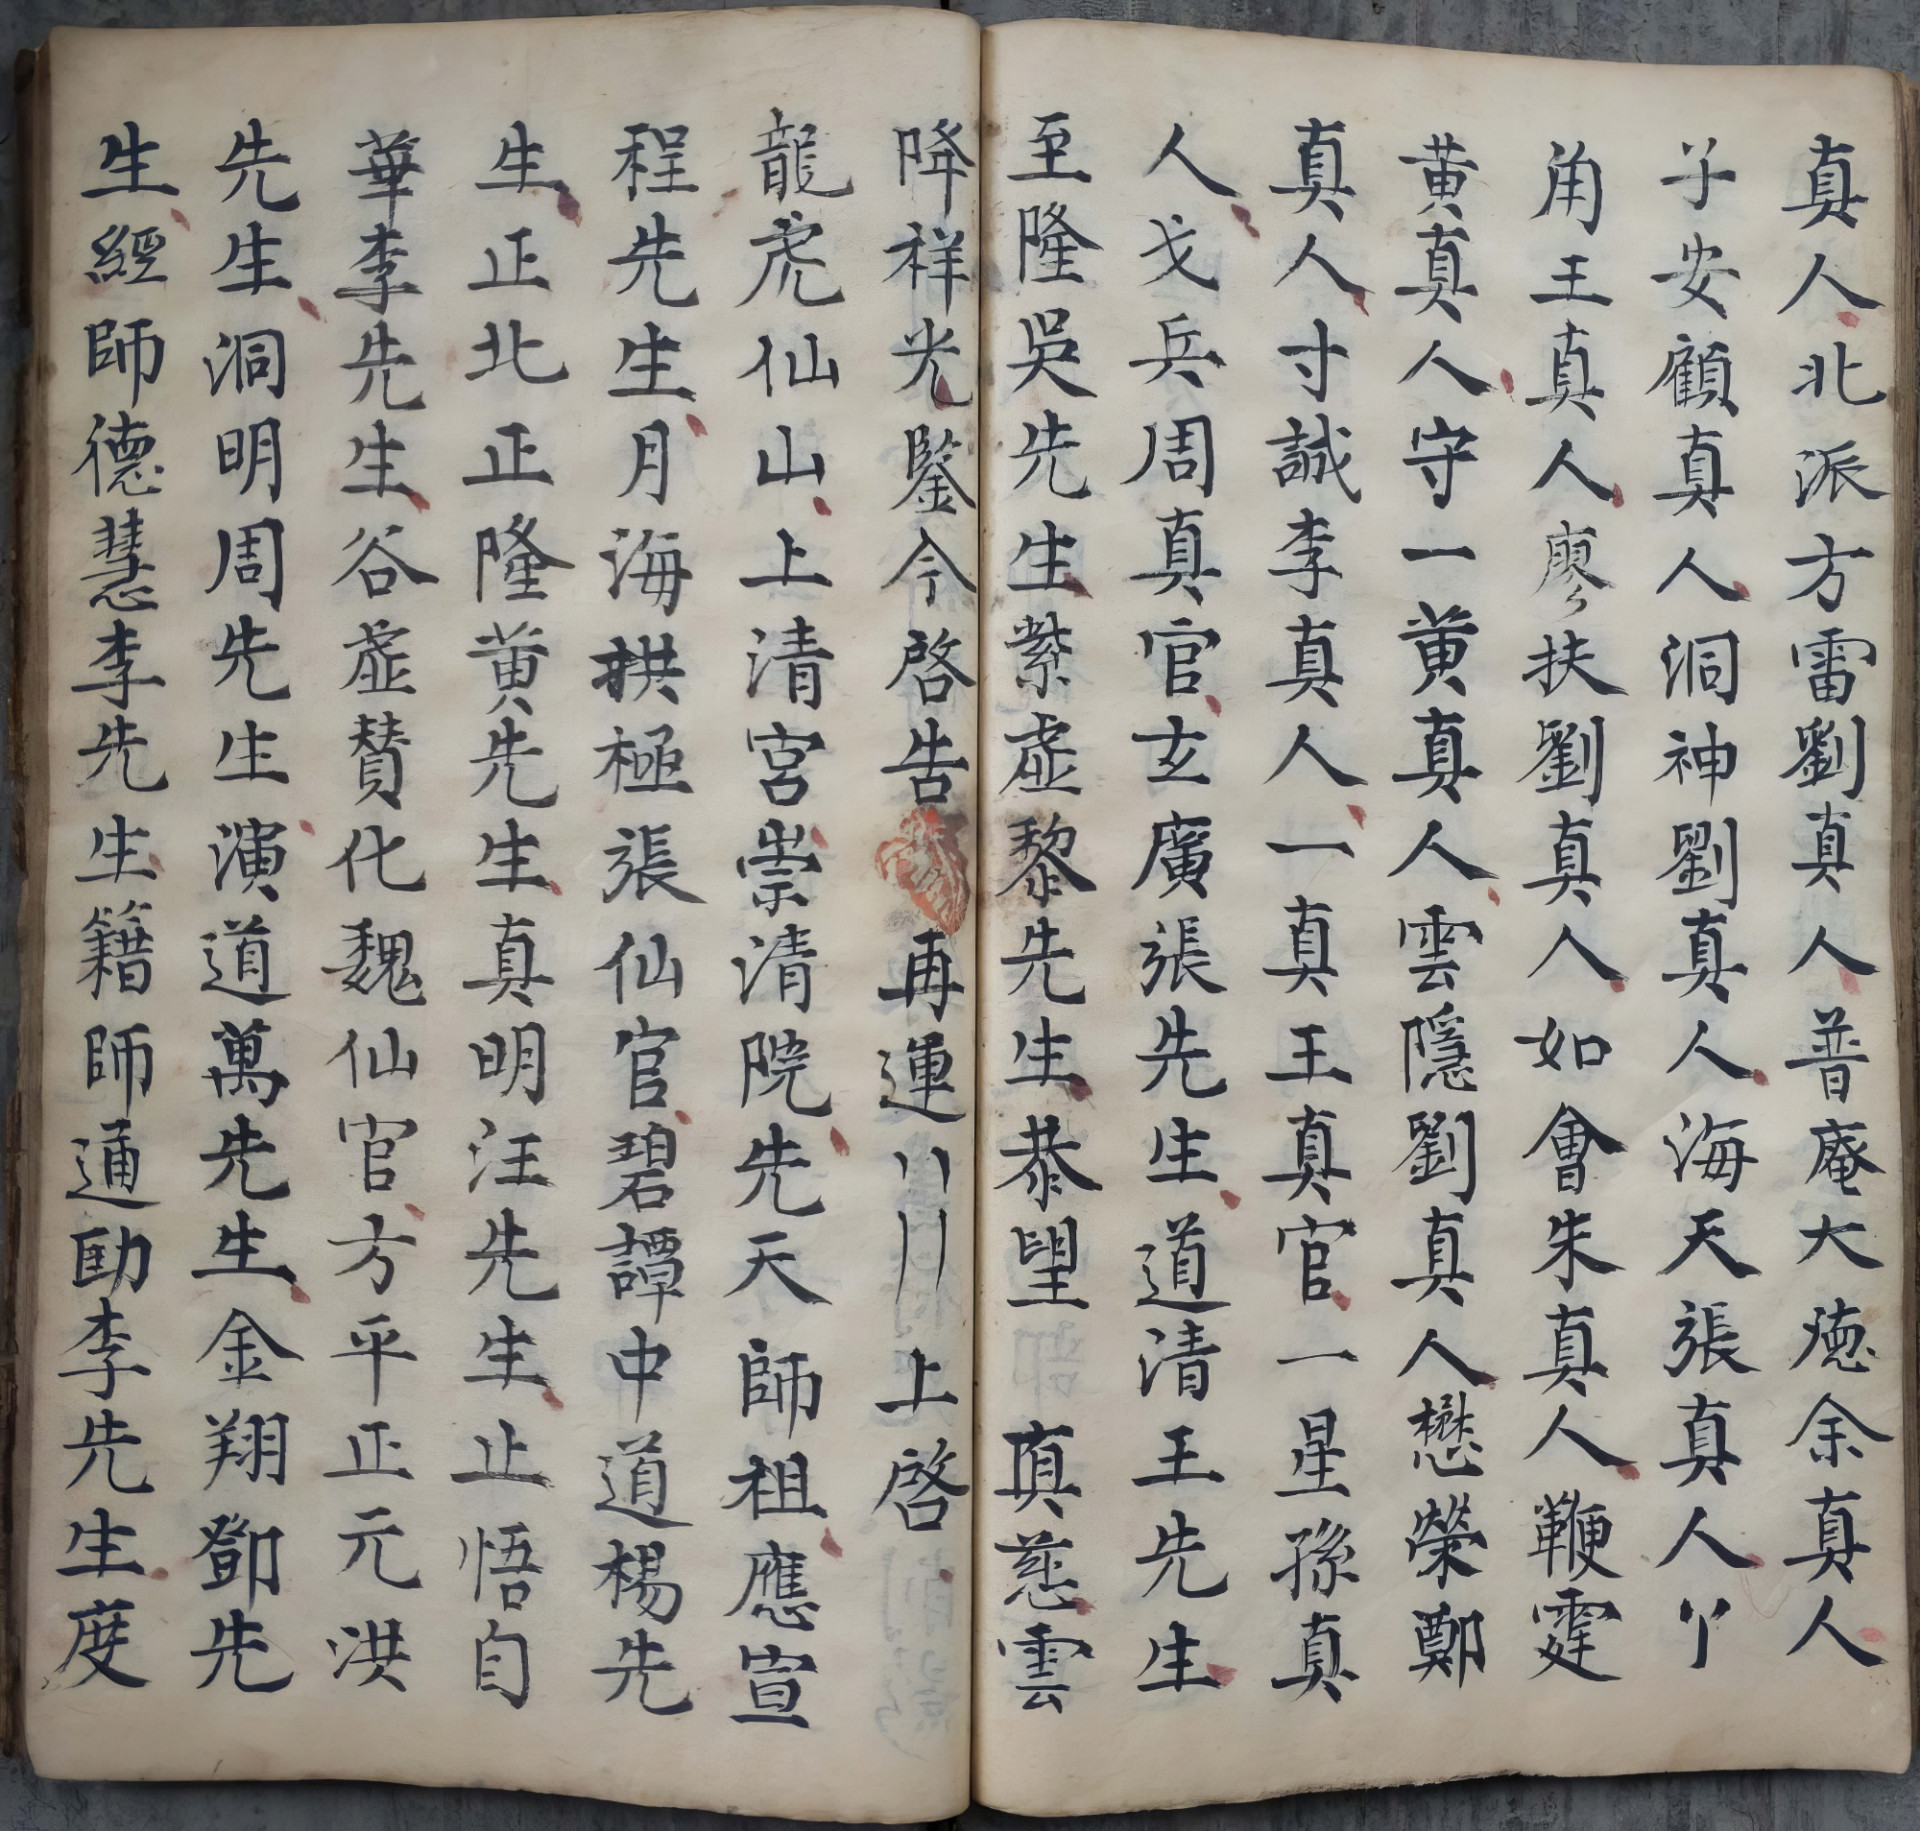 真人北派方雷劉真人普庵大德余真人
子安顧真人洞神劉真人海天張真人丫
角王真人廖扶劉真人如會朱真人鞭霆
黃真人守一黃真人雲隱劉真人懋榮鄭
真人寸誠李真人一真王真官一星孫真
人戈兵周真官玄廣張先生道清王先生
至隆吳先生紫虛黎先生恭望 真慈雲
降祥光鑒今啓告 再運 上啓
龍虎仙山上清宮崇清院先天師祖應宣
程先生月海拱極張仙官碧譚中道楊先
生正北正隆黃先生真明汪先生止悟自
華李先生谷虛贊化魏仙官方平正元洪
先生洞明周先生演道萬先生金翔鄧先
生經師德慧李先生籍師通勛李先生度